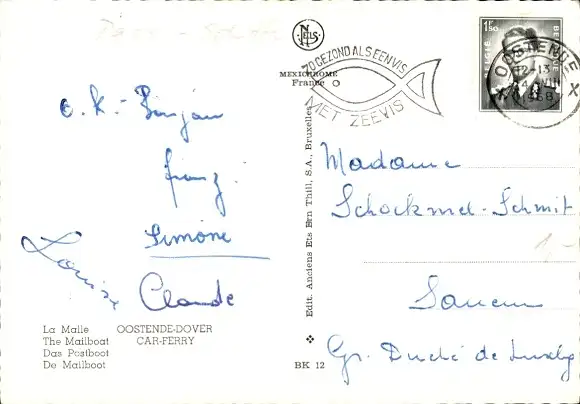 NELS
MEXICHROME
France
ZO GEZOND ALS EEN VIS
MET ZEEVIS
1F50
BELGIE BELGIQUE
OOSTENDE
12-13
1968
X X
O.K.- Binjam
franz
Simone
Louise
Claude
Madame
Schockmel-Schmit
1,-
Gr. Duché de Luxbg
Edit. Anciens Ets Brn Thill, S.A., Bruxelles
La Malle OOSTENDE-DOVER
The Mailboat CAR-FERRY
Das Postboot
De Mailboot
BK 12